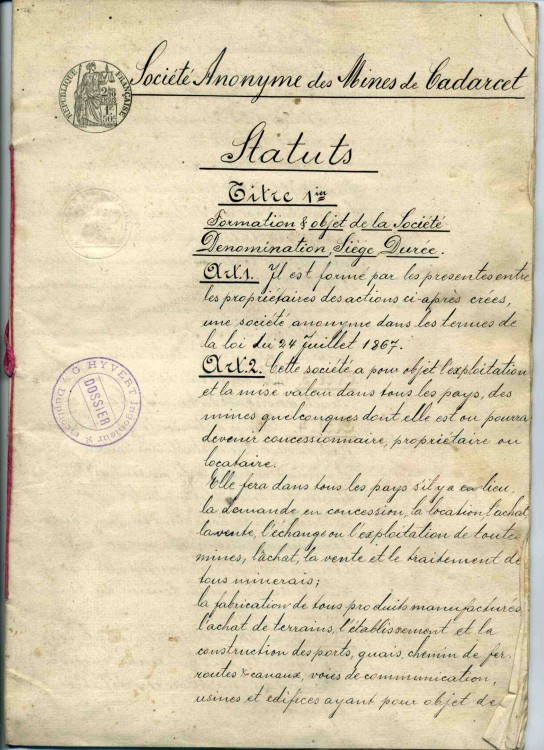 Société Anonyme des Mines de Cadarcet
RÉPUBLIQUE FRANÇAISE
1F
50c
Statuts
Titre 1ier
Formation & objet de la Société
Dénomination, Siège, Durée.
Art.1. Il est formé par les présentes entre
les propriétaires des actions ci-après créés,
une société anonyme dans les termes de
la loi du 24 Juillet 1867.
Art.2. Cette société a pour objet l'exploitation
et la mise valeur dans tous les pays, des
mines quelconques dont elle est ou pourra
devenir concessionnaire, propriétaire ou
locataire.
G. HYVERT Ingénieur
DOSSIER
Elle fera dans tous les pays s'il y a en lieu
la demande en concession, la location l'achat
la vente, l'échange ou l'exploitation de toute
mines, l'achat, la vente et le traitement de
tous minerais;
la fabrication de tous produits manufacturés
l'achat de terrains, l'établissement et la
construction des ports, quais, chemin de fer,
routes & canaux, voies de communication,
usines et édifices ayant pour objet de